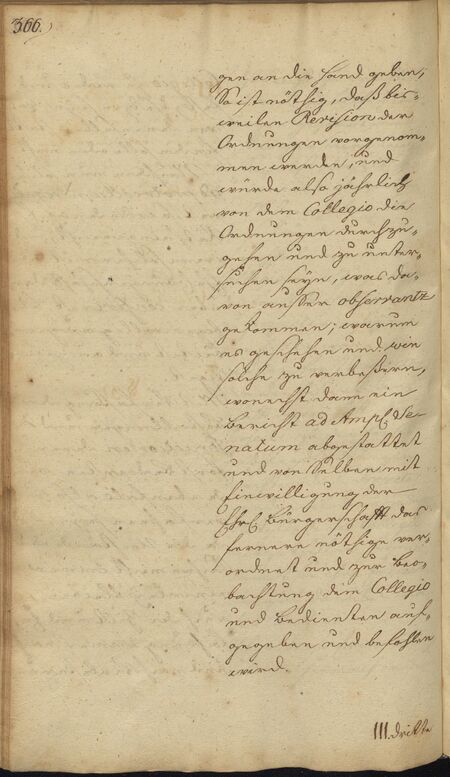 366.
gen an die Hand geben,
So ist nöthig, daß bis-
weilen Revision der
Ordnungen vorgenom-
men werde, und
würde also jährlich
von dem Collegio die
Ordnungen durchzu-
gehen und zu unter-
suchen seyn, was da-
von ausser observantz
gekommen; warum
es geschehen und wie
solche zu verbeßern,
wonechst dann ein
Bericht ad Ampl. Se-
natum abgestattet
und von Selben mit
Einwilligung der
Ehrl. Bürgerschafft das
fernere nöthige ver-
ordnet und zur Beo-
bachtung dem Collegio
und Bedienten auf-
gegeben und befohlen
wird.
III. dritte